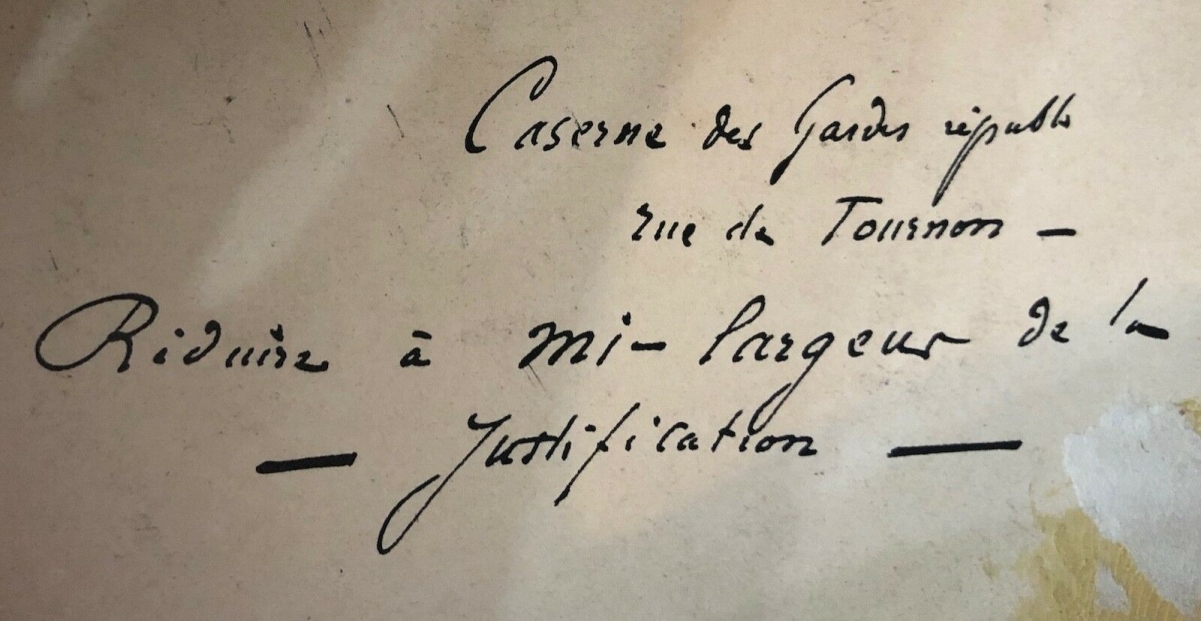 Caserne des Gardes républ
rue de Tournon —
Réduire à mi-largeur de la
— Justification —